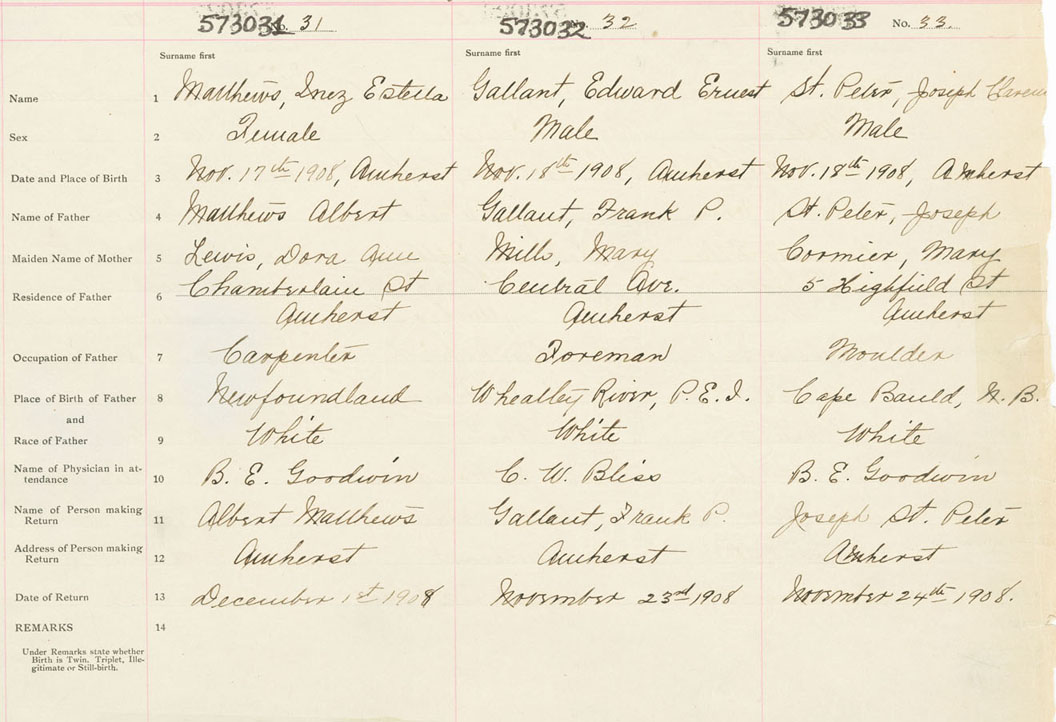 573031 31 573032 32 573033 No. 33.
Surname first Surname first Surname first
Name 1 Matthews, Inez Estella Gallant, Edward Ernest St. Peter, Joseph
Sex 2 Female Male Male
Date and Place of Birth 3 Nov. 17th 1908, Amherst Nov. 18th 1908, Amherst Nov. 18th 1908, Amherst
Name of Father 4 Matthews Albert Gallant, Frank P. St. Peter, Joseph
Maiden Name of Mother 5 Lewis, Dora Ann Mills, Mary Cormier, Mary
Residence of Father 6 Chamberlain St Central Ave. 5 Highfield St
Amherst Amherst Amherst
Occupation of Father 7 Carpenter Foreman Moulder
Place of Birth of Father 8 Newfoundland Wheatley River, P.E.I. Cape Bauld, N.B.
and
Race of Father 9 White White White
Name of Physician in at-
tendance 10 B. E. Goodwin C. W. Bliss B. E. Goodwin
Name of Person making
Return 11 Albert Matthews Gallant, Frank P. Joseph St. Peter
Address of Person making
Return 12 Amherst Amherst Amherst
Date of Return 13 December 1st 1908 November 23rd 1908 November 24th 1908.
REMARKS 14
Under Remarks state whether
Birth is Twin, Triplet, Ille-
gitimate or Still-birth.